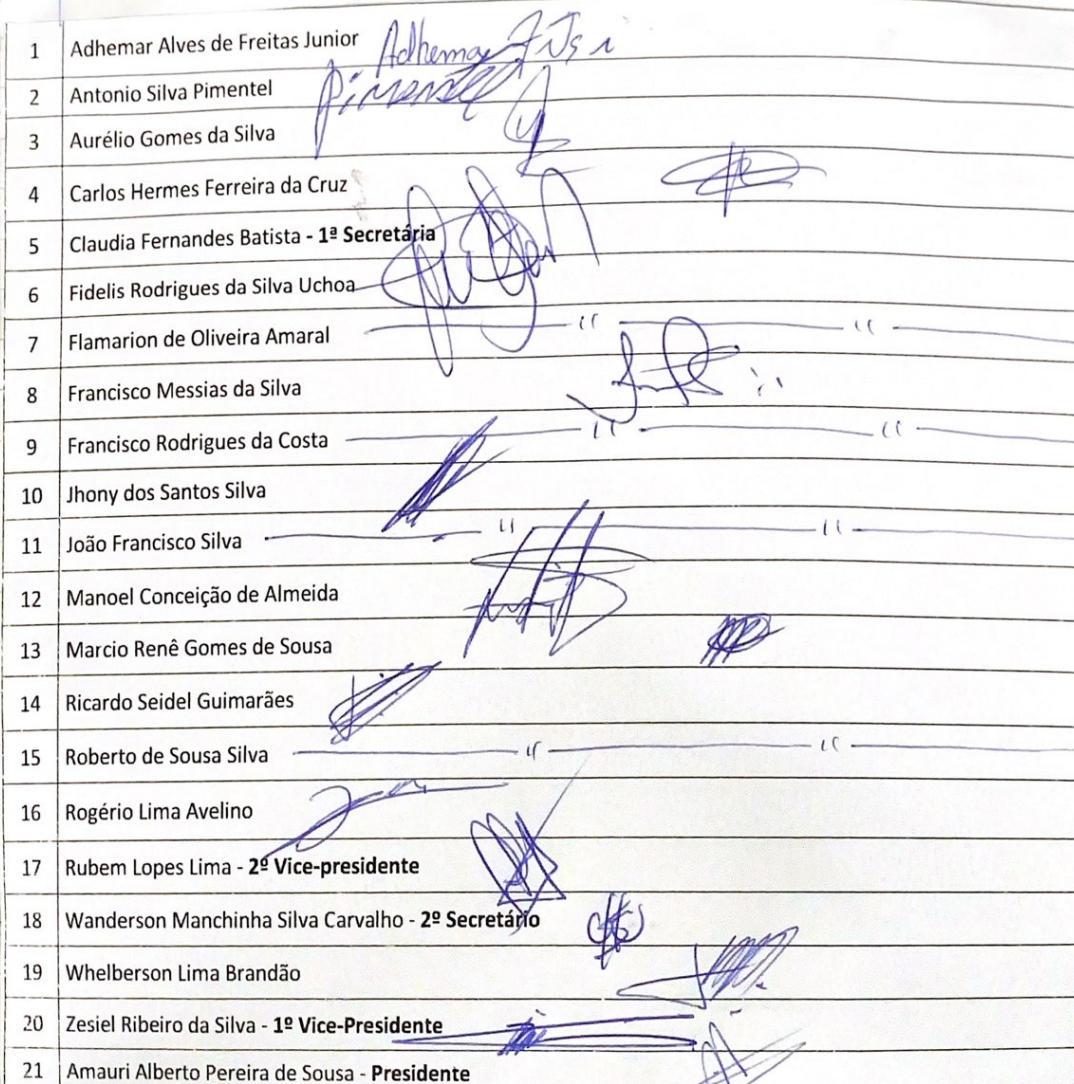 1 Adhemar Alves de Freitas Junior Adhemar
2 Antonio Silva Pimentel Pimentel
3 Aurélio Gomes da Silva
4 Carlos Hermes Ferreira da Cruz
5 Claudia Fernandes Batista - 1ª Secretária
6 Fidelis Rodrigues da Silva Uchoa
7 Flamarion de Oliveira Amaral
8 Francisco Messias da Silva
9 Francisco Rodrigues da Costa
10 Jhony dos Santos Silva
11 João Francisco Silva
12 Manoel Conceição de Almeida
13 Marcio Renê Gomes de Sousa
14 Ricardo Seidel Guimarães
15 Roberto de Sousa Silva
16 Rogério Lima Avelino
17 Rubem Lopes Lima - 2º Vice-presidente
18 Wanderson Manchinha Silva Carvalho - 2º Secretário
19 Whelberson Lima Brandão
20 Zesiel Ribeiro da Silva - 1º Vice-Presidente
21 Amauri Alberto Pereira de Sousa - Presidente